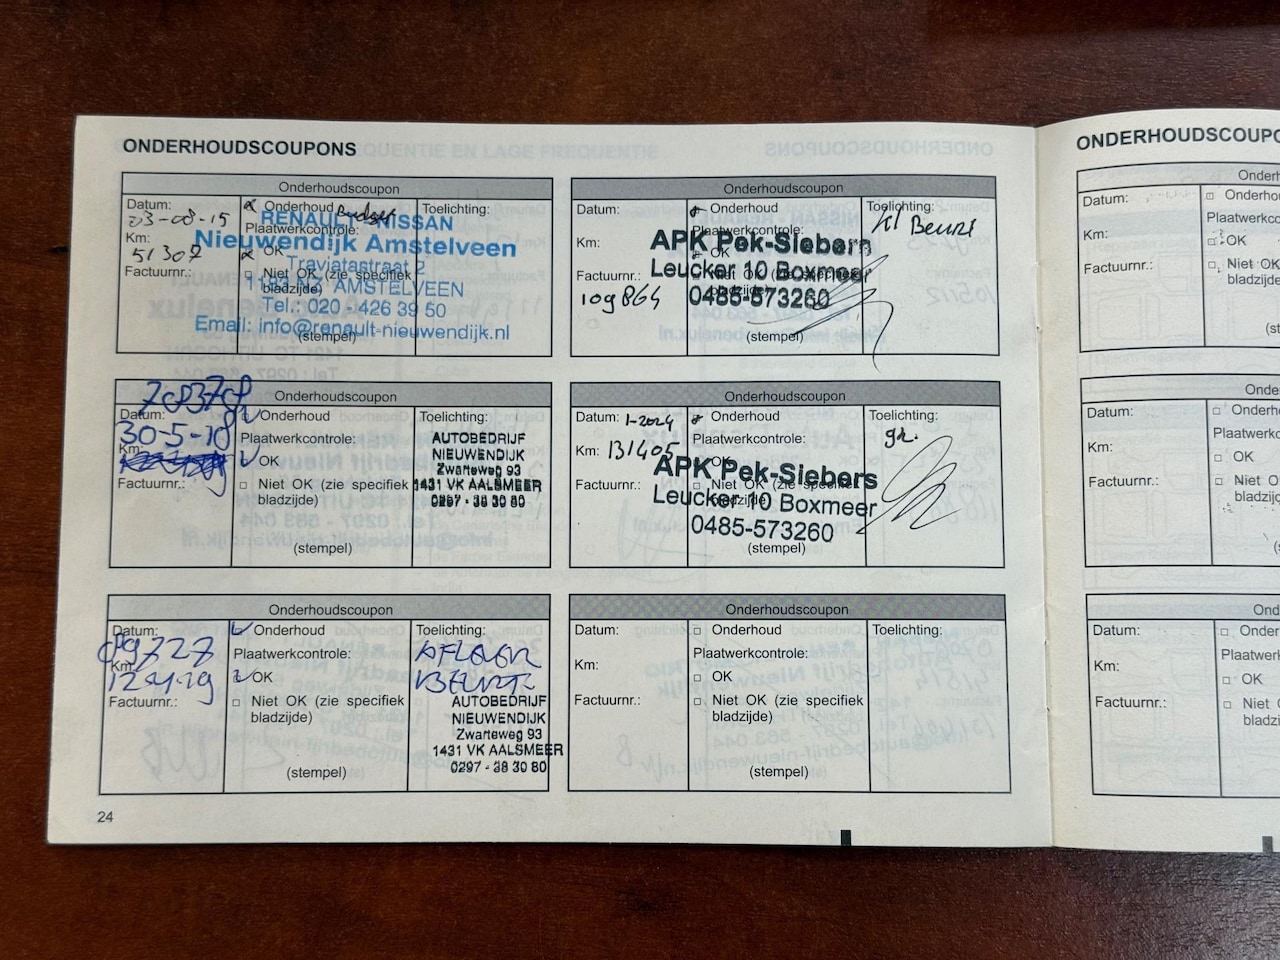 ONDERHOUDSCOUPONS
Onderhoudscoupon
Datum:
03-08-15
Km:
51307
Factuurnr.:
Onderhoud
Plaatwerkcontrole:
OK
Niet OK (zie specifiek
bladzijde)
(stempel)
Toelichting:
RENAULT - NISSAN
Nieuwendijk Amstelveen
Traviatastraat 2
AMSTELVEEN
Tel.: 020 - 426 39 50
Email: info@renault-nieuwendijk.nl
Onderhoudscoupon
Datum:
30-5-18
Km:
Factuurnr.:
Onderhoud
Plaatwerkcontrole:
OK
Niet OK (zie specifiek
bladzijde)
(stempel)
Toelichting:
AUTOBEDRIJF
NIEUWENDIJK
Zwarteweg 93
1431 VK AALSMEER
0297 - 38 30 80
Onderhoudscoupon
Datum:
Km:
Factuurnr.:
Onderhoud
Plaatwerkcontrole:
OK
Niet OK (zie specifiek
bladzijde)
(stempel)
Toelichting:
AFLEVER
BEURT
AUTOBEDRIJF
NIEUWENDIJK
Zwarteweg 93
1431 VK AALSMEER
0297 - 38 30 80
24
Onderhoudscoupon
Datum:
Km:
Factuurnr.:
109864
Onderhoud
Plaatwerkcontrole:
OK
Niet OK (zie specifiek
bladzijde)
(stempel)
Toelichting:
Kl Beurt
APK Pek-Siebers
Leucker 10 Boxmeer
0485-573260
Onderhoudscoupon
Datum: 1-2024
Km: 131405
Factuurnr.:
Onderhoud
Plaatwerkcontrole:
OK
Niet OK (zie specifiek
bladzijde)
(stempel)
Toelichting:
gr.
APK Pek-Siebers
Leucker 10 Boxmeer
0485-573260
Onderhoudscoupon
Datum:
Km:
Factuurnr.:
Onderhoud
Plaatwerkcontrole:
OK
Niet OK (zie specifiek
bladzijde)
(stempel)
Toelichting:
ONDERHOUDSCOUPO
Onderh
Datum:
Km:
Factuurnr.:
Onderho
Plaatwerk
OK
Niet OK
bladzijd
(st
Onde
Datum:
Km:
Factuurnr.:
Onderh
Plaatwerk
OK
Niet O
bladzij
Ond
Datum:
Km:
Factuurnr.:
Onder
Plaatwerk
OK
Niet
bladzi